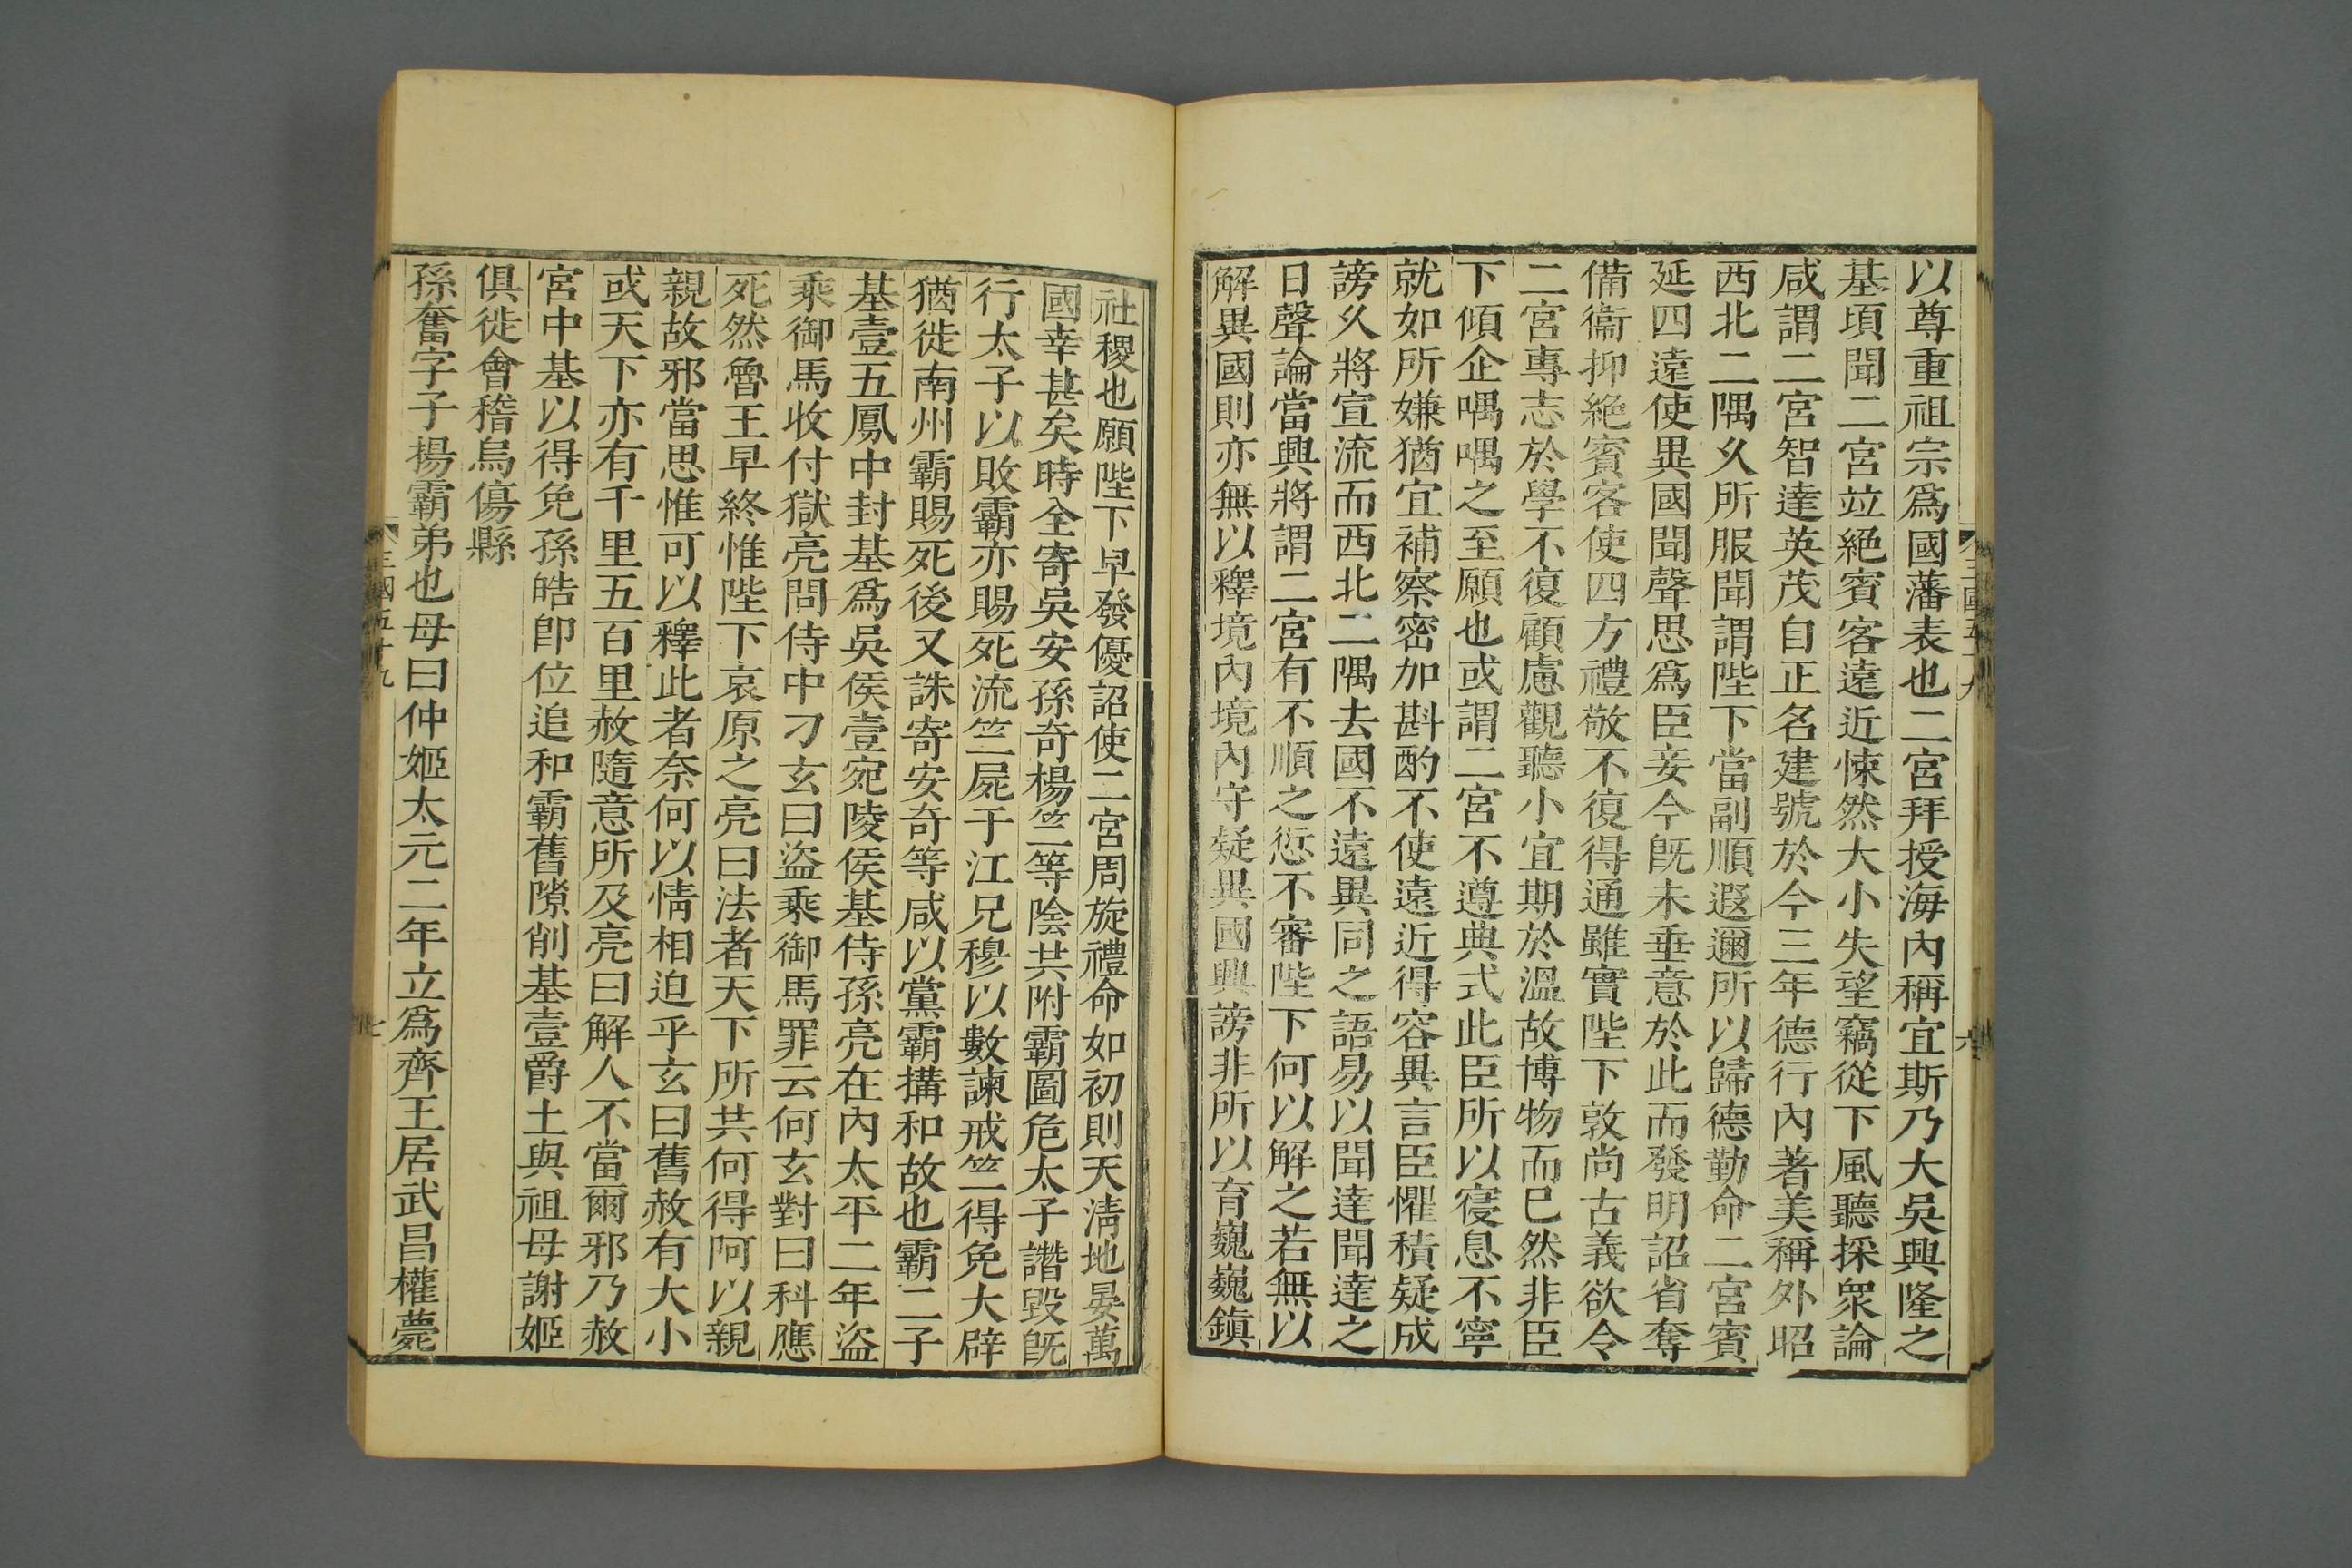 以尊重祖宗爲國藩表也二宮拜授海內稱宜斯乃大吳興隆之
基頃聞二宮竝絕賓客遠近悚然大小失望竊從下風聽採眾論
咸謂二宮智達英茂自正名建號於今三年德行內著美稱外昭
西北二隅乆所服聞謂陛下當副順遐邇所以歸德勤命二宮賓
延四遠使異國聞聲思爲臣妾今旣未垂意於此而發明詔省奪
備衞抑絕賓客使四方禮敬不復得通雖實陛下敦尚古義欲令
二宮專志於學不復顧慮觀聽小宜期於溫故博物而已然非臣
下傾企喁喁之至願也或謂二宮不遵典式此臣所以寑息不寧
就如所嫌猶宜補察密加斟酌不使遠近得容異言臣懼積疑成
謗乆將宣流而西北二隅去國不遠異同之語易以聞達聞達之
日聲論當興將謂二宮有不順之愆不審陛下何以解之若無以
解異國則亦無以釋境內境內守疑異國興謗非所以育巍巍鎭
三國五十九
六
社稷也願陛下早發優詔使二宮周旋禮命如初則天淸地晏萬
國幸甚矣時全寄吳安孫奇楊竺等陰共附霸圖危太子譖毀旣
行太子以敗霸亦賜死流竺屍于江兄穆以數諫戒竺得免大辟
猶徙南州霸賜死後又誅寄安奇等咸以黨霸搆和故也霸二子
基壹五鳳中封基爲吳侯壹宛陵侯基侍孫亮在內太平二年盜
乘御馬收付獄亮問侍中刁玄曰盜乘御馬罪云何玄對曰科應
死然魯王早終惟陛下哀原之亮曰法者天下所共何得阿以親
親故邪當思惟可以釋此者奈何以情相迫乎玄曰舊赦有大小
或天下亦有千里五百里赦隨意所及亮曰解人不當爾邪乃赦
宮中基以得免孫皓卽位追和霸舊隙削基壹爵土與祖母謝姬
俱徙會稽烏傷縣
孫奮字子揚霸弟也母曰仲姬太元二年立爲齊王居武昌權薨
三國五十九
七